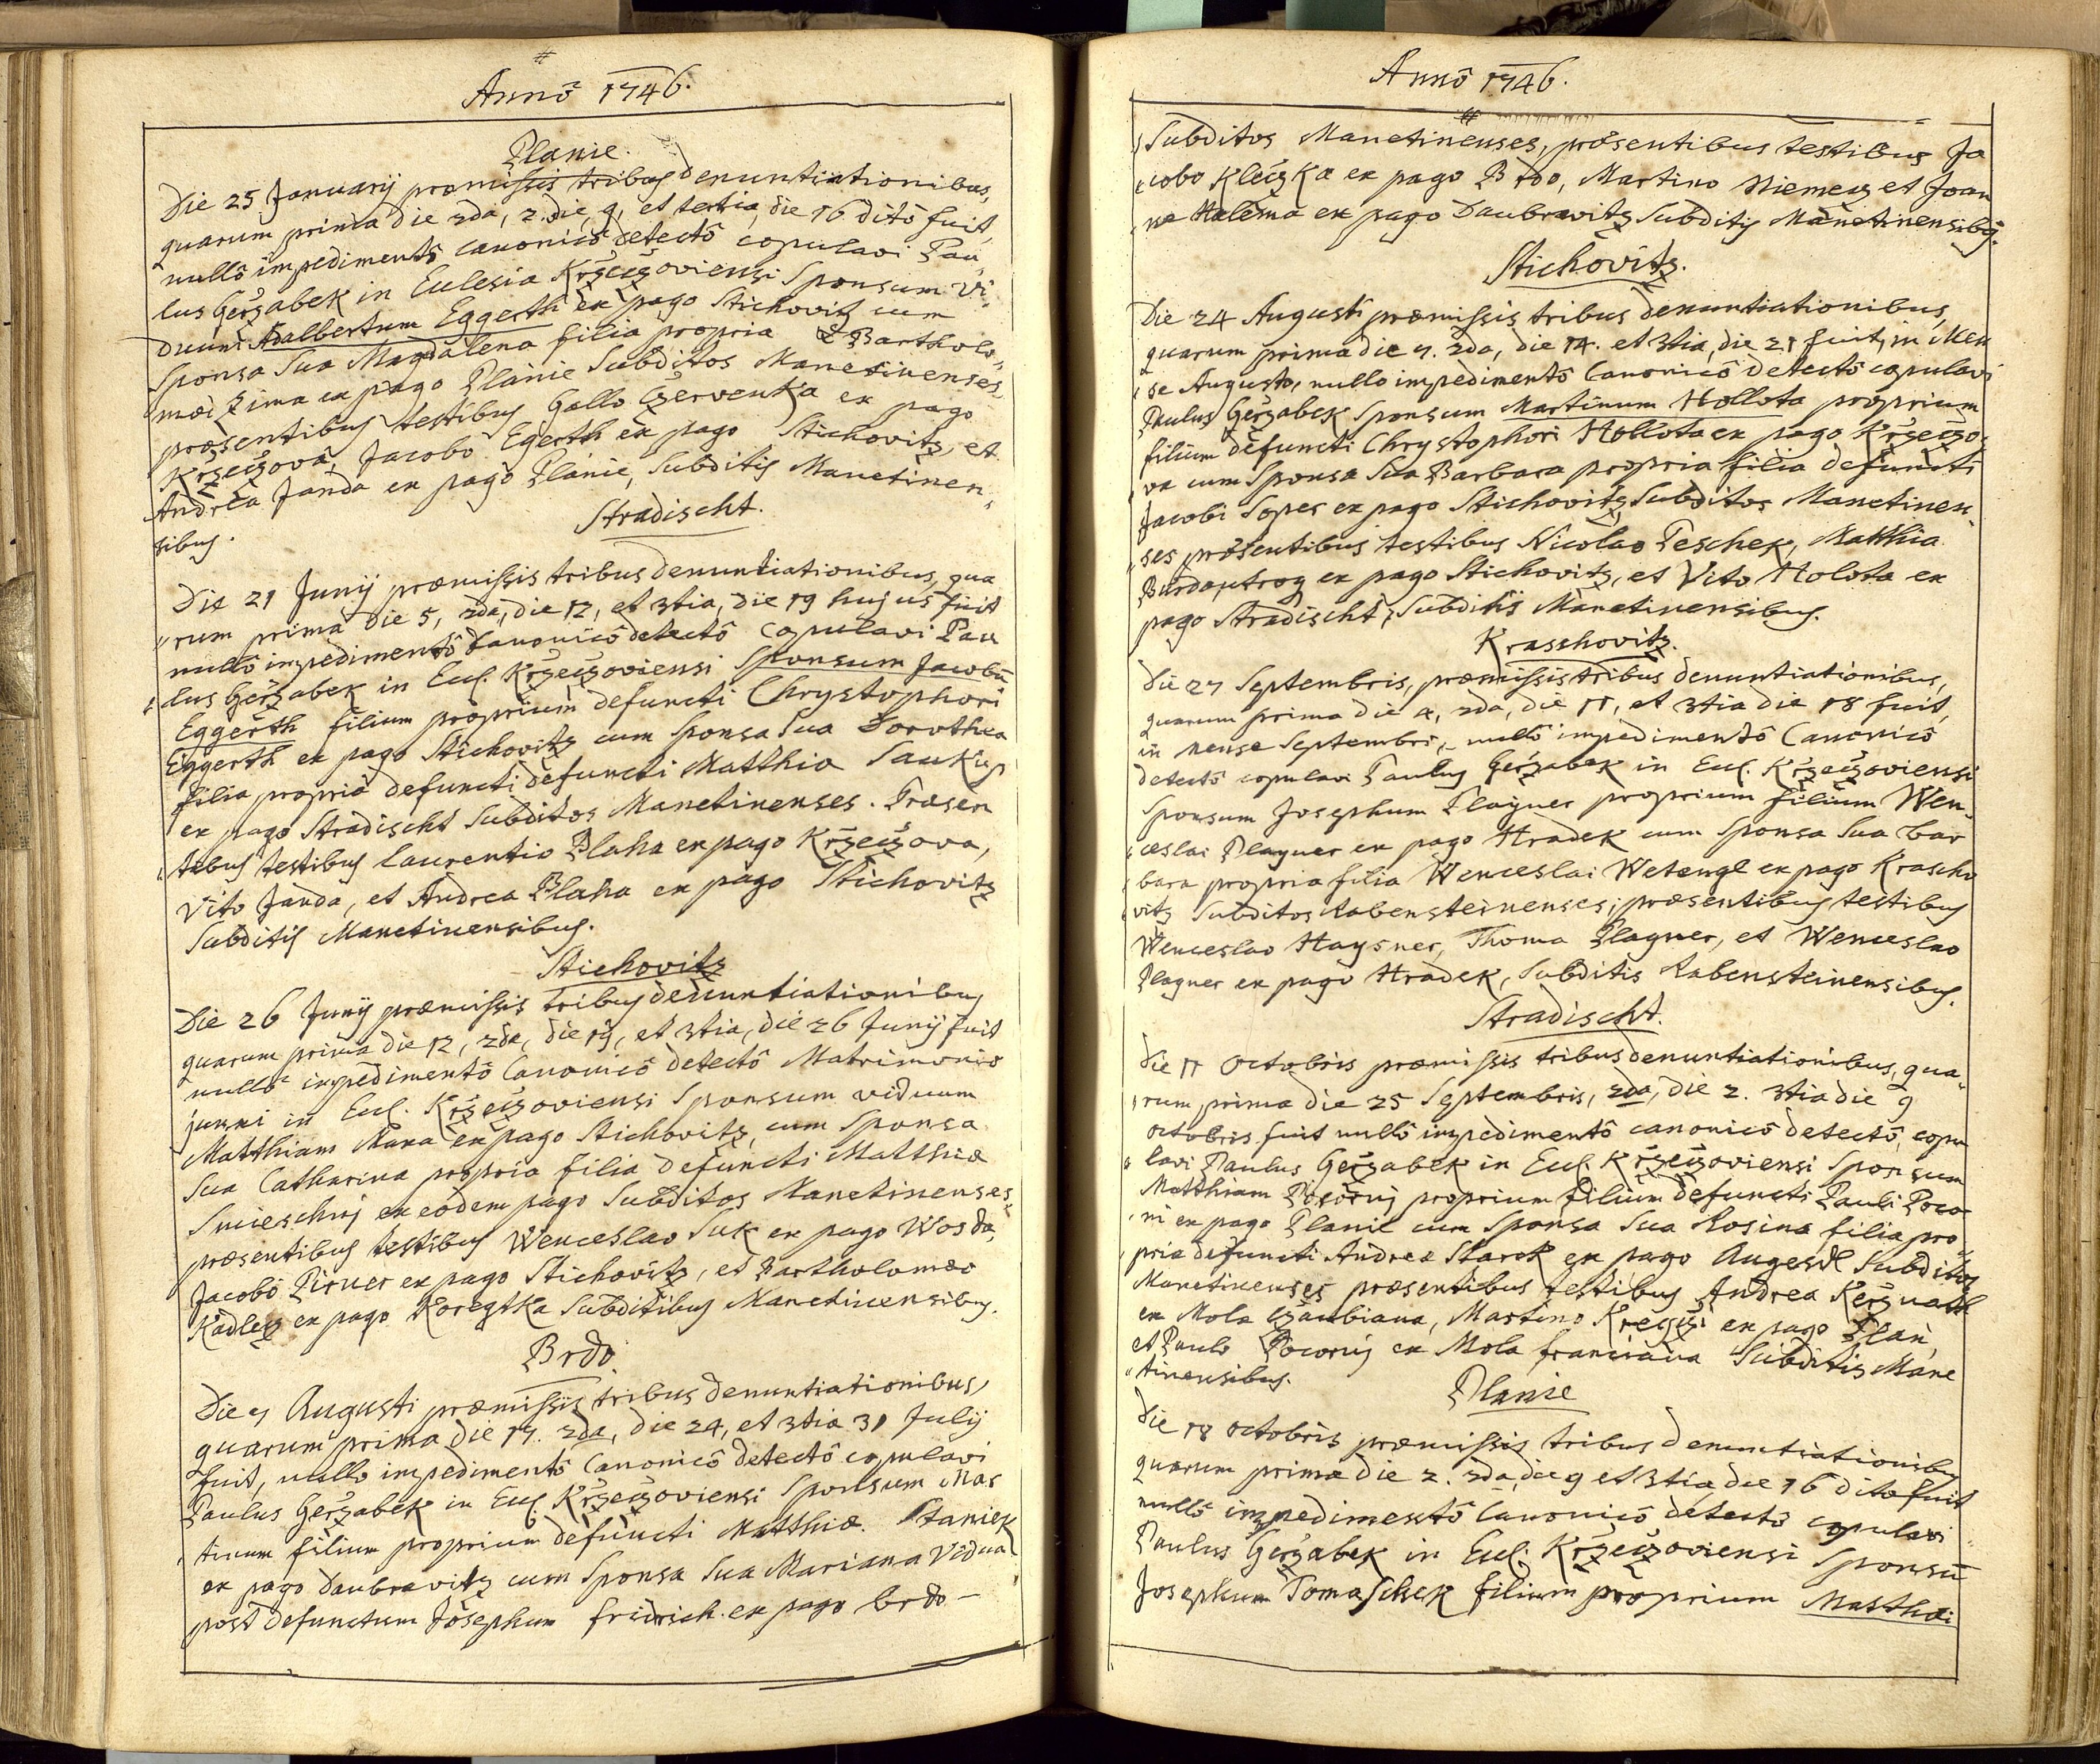 Annô 1746.
Planie.
Die 25 Januarij præmissis tribus denuntiationibus,
quarum prima die 2da, 2. die, 9, et tertia, die 16 ditô fuit,
nullô impedimentô canonicô detectô copulavi Pau„
lus Gerzabek in Eclesia Krzeczoviensi Sponsum vi„
duum Adalbertum Eggerth ex pago Stichovitz cum
Sponsa Sua Magdalena filia propria Bartholo„
mæi Zima ex pago Planie Subditos Manetinenses,
præsentibus testibus Gallo Czervenka ex pago
Krzeczova, Jacobo Egerth ex pago Stichovitz, et
Andrea Janda ex pago Planie, Subditis Manetinen„
sibus.
Stradischt.
Die 21 Junij præmissis tribus denuntiationibus, qua
„rum prima die 5, 2da, die 12, et 3tia, die 19 hujus fuit
nullô impedimentô Canonicô detectô copulavi Pau
„lus Gerzabek in Eccl. Krzeczoviensi Sponsum Jacobū
Eggerth filium proprium defuncti Chrystophori
Eggerth ex pago Stichovitz cum Sponsa Sua Dorothea
filia propria defuncti defuncti Matthiæ Saukup
ex pago Stradischt Subditos Manetinenses. Præsen
„tibus testibus Laurentio Blaha ex pago Krzeczova,
Vito Janda, et Andrea Blaha ex pago Stichovitz
Subditis Manetinensibus.
Stichovitz
Die 26 Junij præmissis tribus denuntiationibus
quarum prima die 12, 2da, die 19, et 3tia, die 26 Junij fuit
nullô impedimentô Canonicô detectô Matrimonio
junxi in Eccl. Krzeczoviensi Sponsum viduum
Matthiam Kuna ex pago Stichovitz, cum Sponsa
Sua Catharina propria filia defuncti Matthiæ
Smieschny ex eodem pago Subditos Manetinenses,
præsentibus testibus Wenceslao Suk ex pago Wosda,
Jacobo Pirner ex pago Stichovitz, et Bartholomæo
Kadlecz ex pago Koregtka Subditibus Manetinensibus.
Brdo.
Die 9 Augusti præmissis tribus denuntiationibus,
quarum prima die 17. 2da, die 24, et 3tia 31 Julij
fuit, nullo impedimentô Canonicô detectô copulavi
Paulus Gerzabek in Eccl. Krzeczoviensi Sponsum Mar
„tinum filium proprium defuncti Matthiæ Staniek
ex pago Daubravitz cum Sponsa Sua Mariana Vidua
post defunctum Josephum fridrich ex pago brdo –
Annô 1746.
Subditos Manetinenses, præsentibus testibus Ja
„cobo Kleczka ex pago Brdo, Martino Niemecz et Joan
„ne Halema ex pago Daubravitz Subditis Manetinensibus.
Stichovitz.
Die 24 Augusti præmissis tribus denuntiationibus,
quarum prima die 7. 2da, die 14. et 3tia, die 21 fuit, in Men
„se Augusto, nullo impedimentô Canonicô detectô copulavi
Paulus Gerzabek Sponsum Martinum Hollota proprium
filium defuncti Chrystophori Hollota ex pago Krzeczo„
va cum Sponsa Sua Barbara propria filia defuncti
Jacobi Soper ex pago Stichovitz Subditos Manetinen„
„ses præsentibus testibus Nicolao Peschek, Matthia
ex pago Stichovitz, et Vito Holota ex
pago Stradischt, Subditis Manetinensibus.
Krasshovitz.
Die 27 Septembris, præmissis tribus denuntiationibus,
quarum prima die 4, 2da, die 11, et 3tia die 18 fuit,
in mense Septembri, nullô impedimentô Canonicô
detectô copulavi Paulus Gerzabek in Eccl. Krzeczoviensi
Sponsum Josephum Plagner proprium filium Wen„
„ceslai Plagner ex pago Hradek cum Sponsa Sua bar
„bara propria filia Wenceslai Wetengl ex pago Krascho
„vitz Subditos Rabensteinenses, præsentibus testibus
Wenceslao Haysner, Thoma Plagner, et Wenceslao
Plagner ex pago Hradek, Subditis Rabensteinensibus.
Stradischt.
Die 11 Octobris præmissis tribus denuntiationibus, qua„
„rum prima die 25 Septembris, 2da, die 2. 3tia die 9
octobris fuit nullô impedimentô canonicô detectô, copu
„lavi Paulus Gerzabek in Eccl. Krzeczoviensi Sponsum
Matthiam Pocorny proprium filium defuncti Pauli Poco
„ni ex pago Planie cum Sponsa Sua Rosina filia pro
„pria defuncti Andreæ Starck ex pago Augesdl Subditos
Manetinenses præsentibus testibus Andrea
ex Mola czaubiana, Martino Kreyczi ex pago Plan,
et Paulo Pocorny ex Mola franciana Subditis Mane
„tinensibus.
Planie
Die 18 octobris præmissis tribus denuntiationibus
quarum prima die 2. 2da, die 9 et 3tia, die 16 dito fuit
nullô impedimentô Canonicô detectô copulavi
Paulus Gerzabek in Eccl. Krzeczoviensi Sponsū
Josephum Tomaschek filium proprium Matthæi